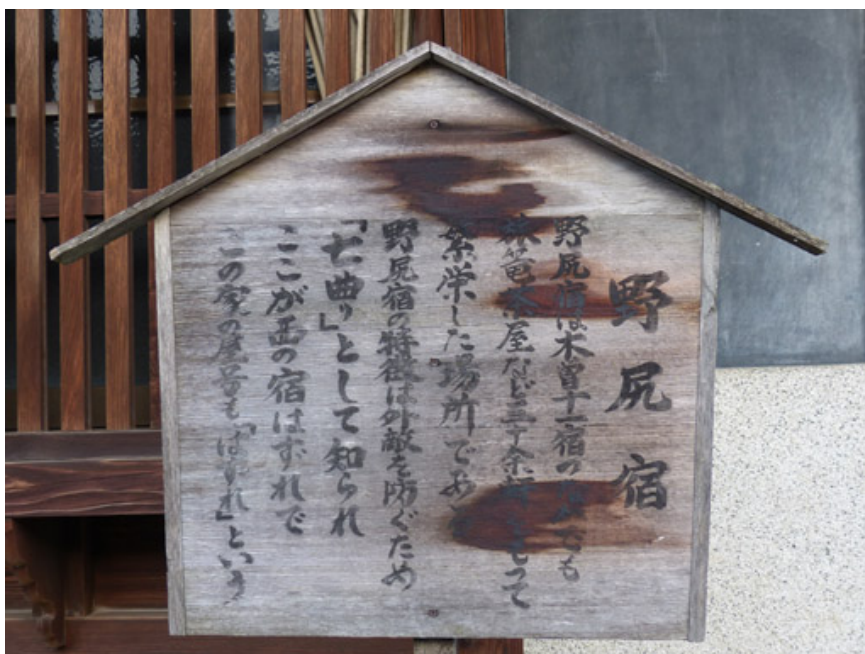 野尻宿
野尻宿は木曽十一宿のなかでも
旅篭茶屋など三十余軒をもって
繁栄した場所である
野尻宿の特徴は外敵を防ぐため
「七曲り」として知られ
ここが西の宿はずれで
この家の屋号も「はずれ」という